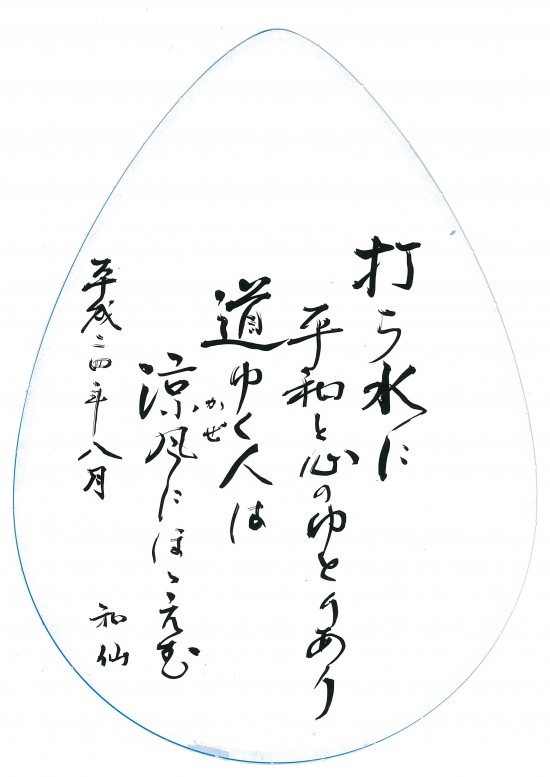 打ち水に
平和と心のゆとりあり
道ゆく人は
涼風にほゝえむ
かぜ
平成二四年八月
和仙